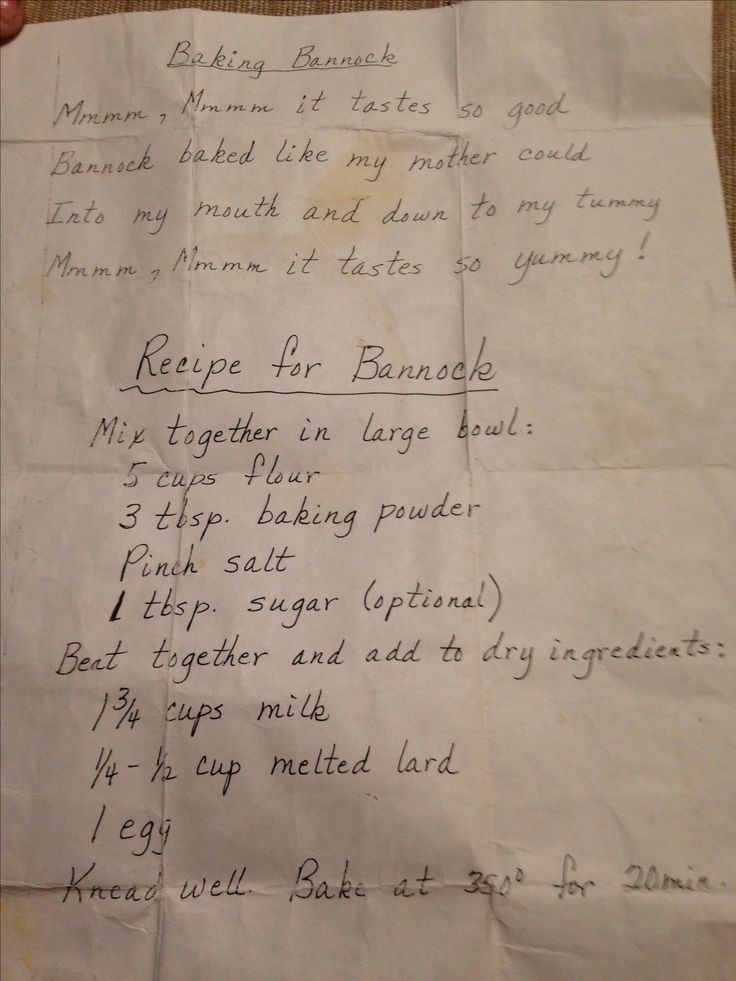 Baking Bannock
Mmmm, Mmmm it tastes so good
Bannock baked like my mother could
Into my mouth and down to my tummy
Mmmm, Mmmm it tastes so yummy!
Recipe for Bannock
Mix together in large bowl:
5 cups flour
3 tbsp. baking powder
Pinch salt
1 tbsp. sugar (optional)
Beat together and add to dry ingredients:
1 3/4 cups milk
1/4 - 1/2 cup melted lard
1 egg
Knead well. Bake at 350° for 20 min.